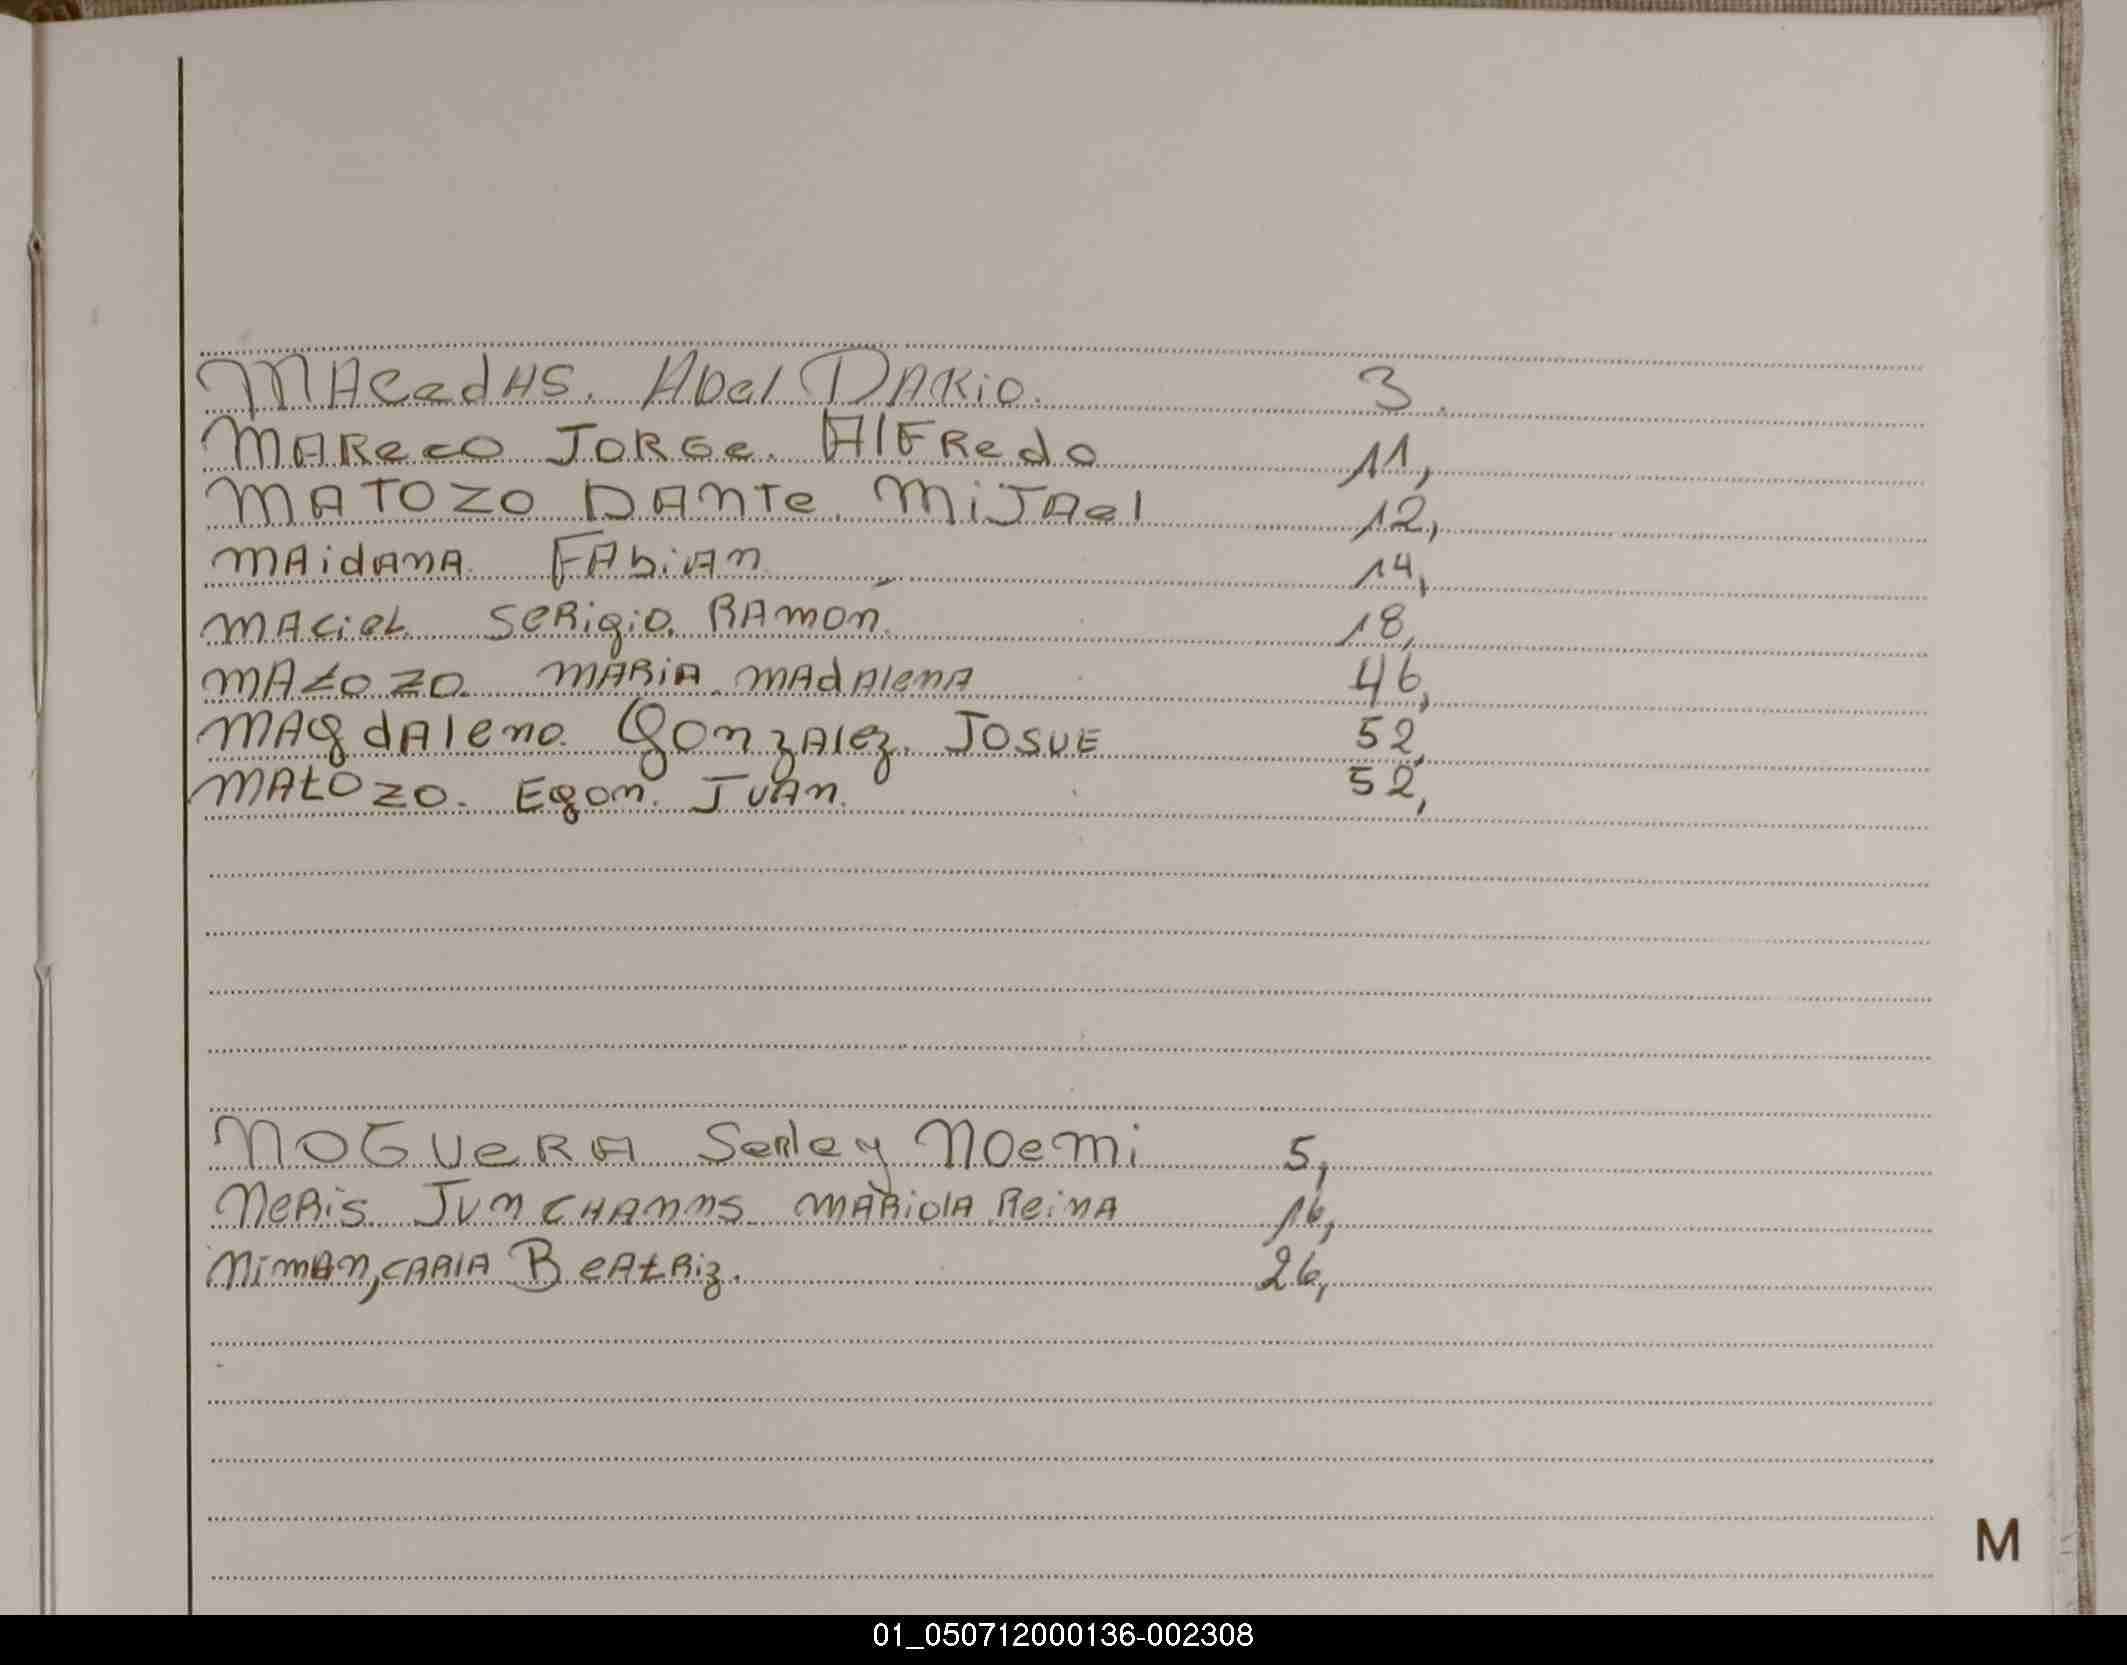 MACedAS. Abel DARiO. 3.
MAReco JORGe. AlFRedo 11,
MATOZO DAnTe. MiJAel 12,
MAidAnA FAbiAn 14,
MACieL SeRigio. RAmón. 18,
MAtozo MARiA MAdAlenA 46,
MAgdAleno Gonzalez. JOSUE 52,
MAtOzo. Egon. JuAn. 52,
NOGUeRA Serley NOemi 5,
NeRis JunCHAnns MARiolA ReinA 16,
NimAn, CARlA BeAtRiz. 26,
M
01_050712000136-002308